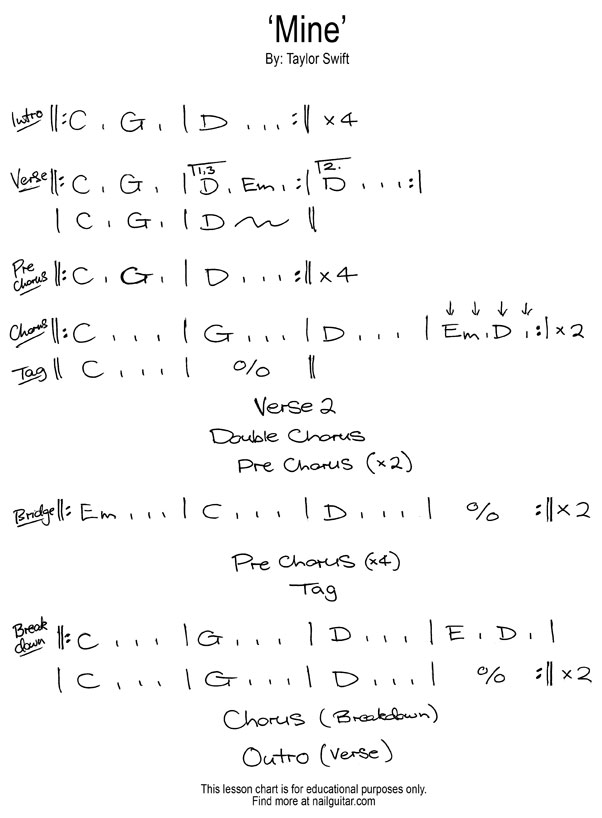 ‘Mine’
By: Taylor Swift
Intro ||: C . G . | D . . . :|| x4
Verse ||: C . G . |1,3 D . Em . :|2. D . . . :|
| C . G . | D ~ ||
Pre Chorus ||: C . G . | D . . . :|| x4
Chorus ||: C . . . | G . . . | D . . . | ↓ ↓ ↓ ↓ Em . D . :| x2
Tag || C . . . | % ||
Verse 2
Double Chorus
Pre Chorus (x2)
Bridge ||: Em . . . | C . . . | D . . . | % :|| x2
Pre Chorus (x4)
Tag
Break down ||: C . . . | G . . . | D . . . | E . D . |
| C . . . | G . . . | D . . . | % :|| x2
Chorus (Breakdown)
Outro (Verse)
This lesson chart is for educational purposes only.
Find more at nailguitar.com